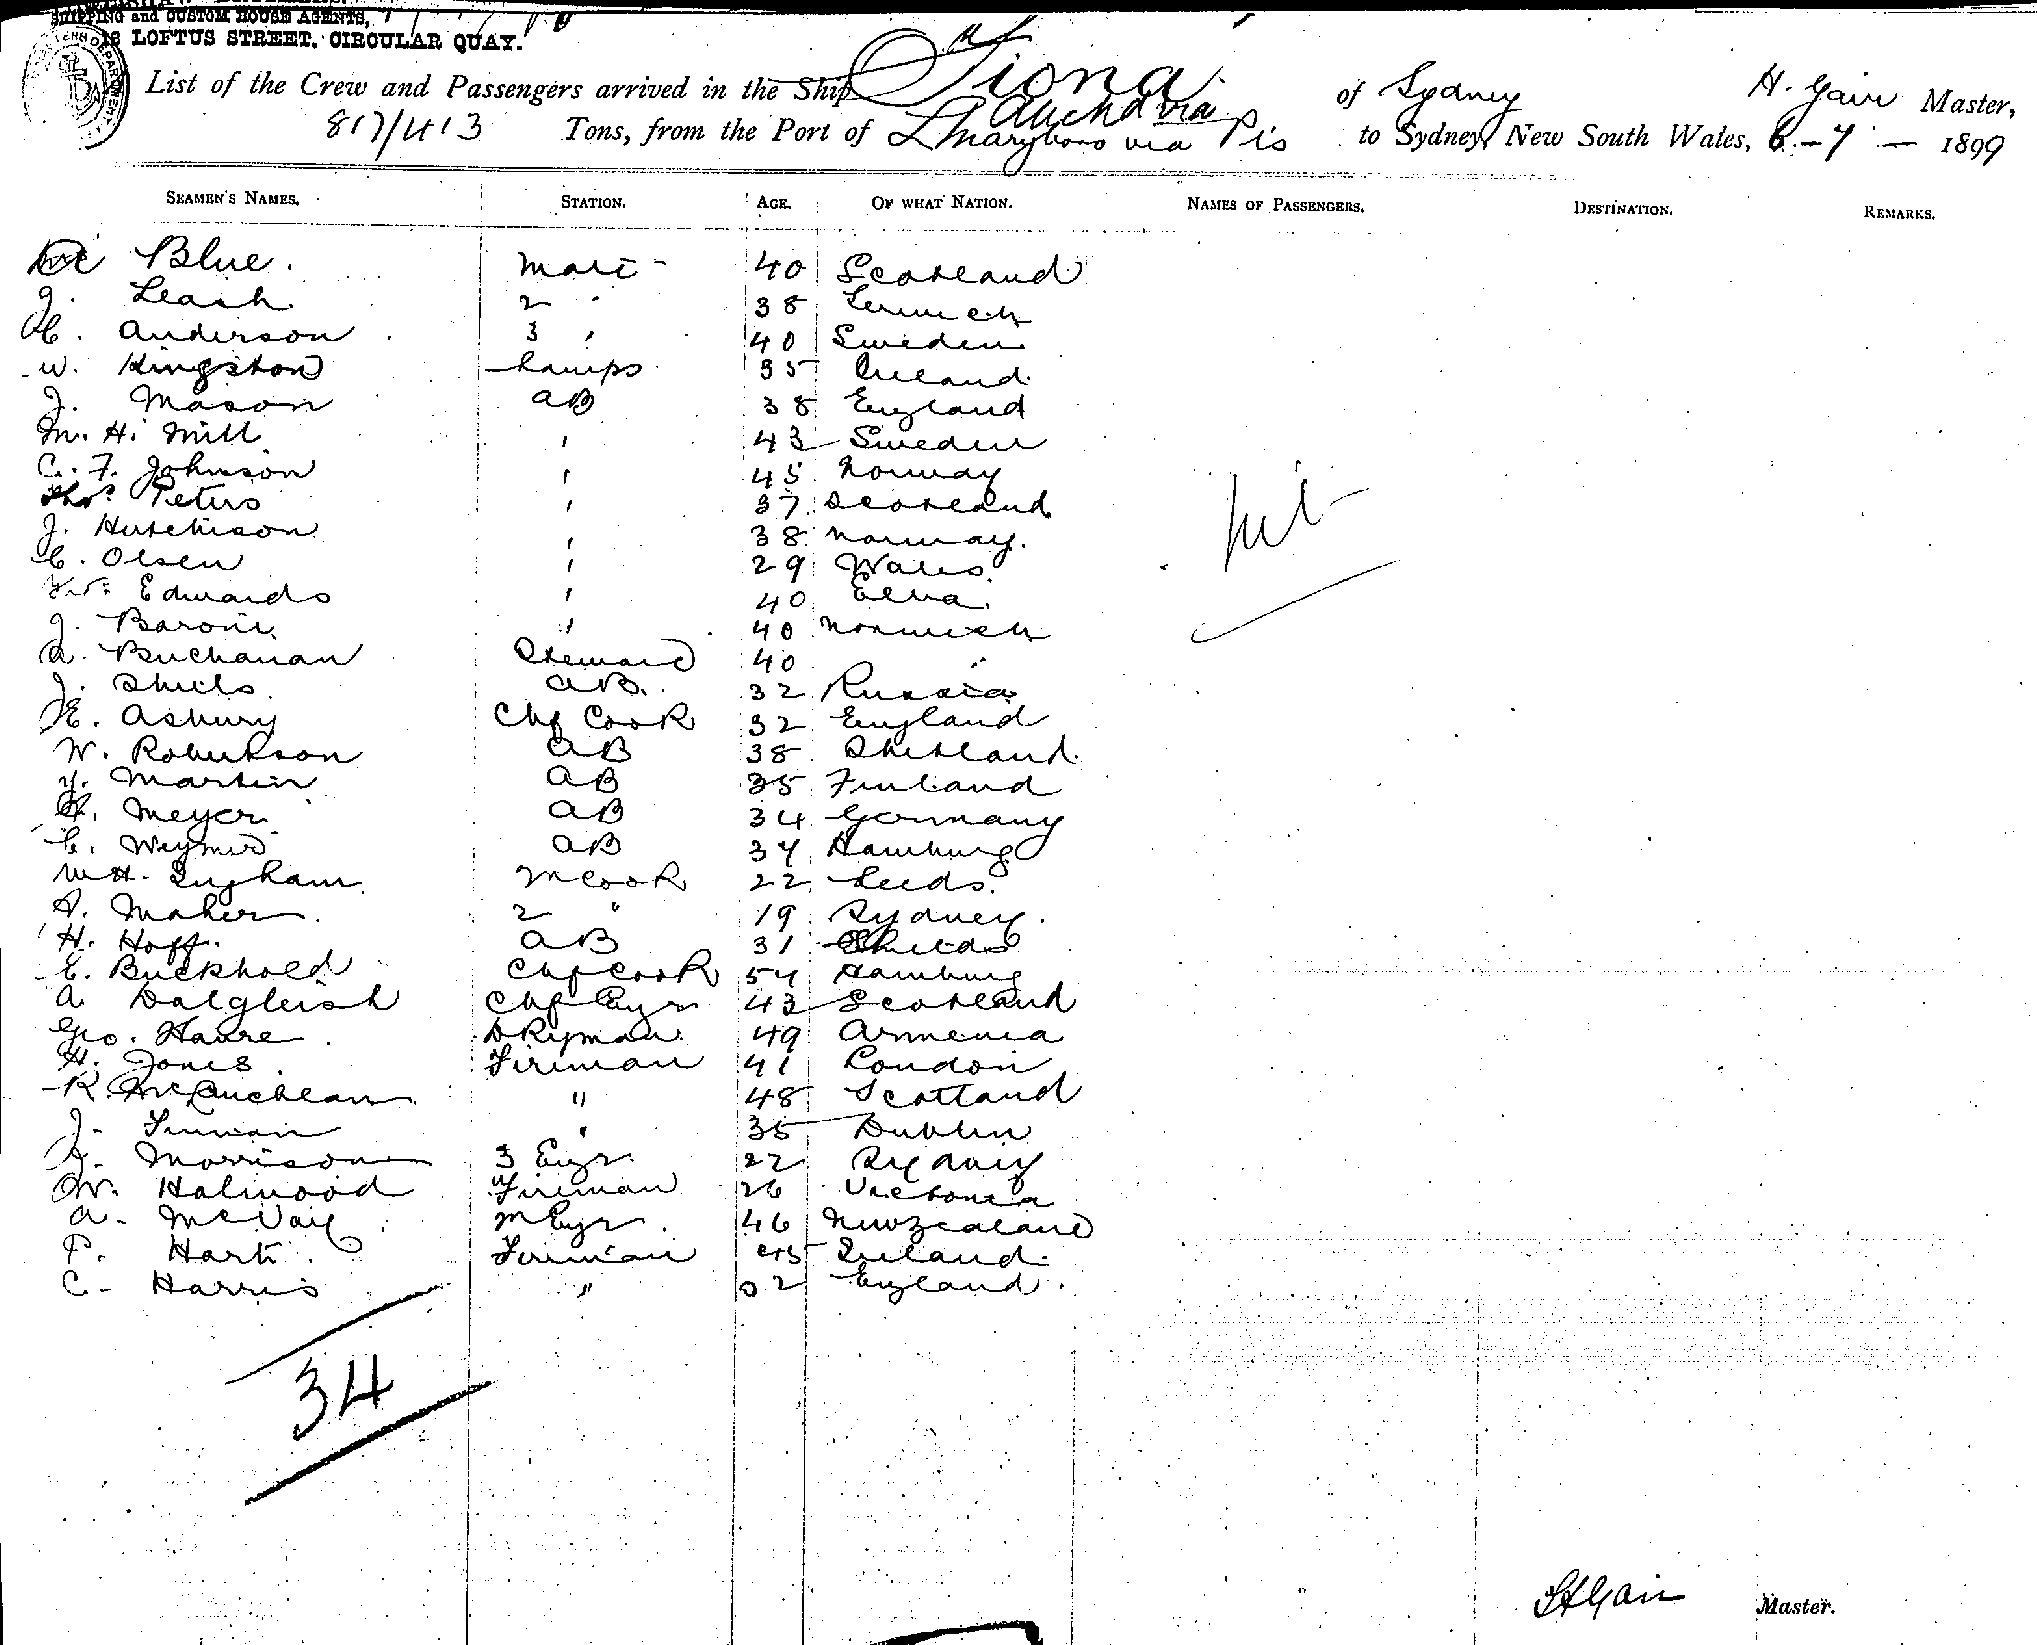 SHIPPING and CUSTOM HOUSE AGENTS,
18 LOFTUS STREET. CIRCULAR QUAY.
List of the Crew and Passengers arrived in the Ship Fiona of Sydney H. Gair Master,
817/413 Tons, from the Port of Maryboro via Auckld via Pis to Sydney, New South Wales, 6 - 7 - 1899
SEAMEN'S NAMES. STATION. AGE. OF WHAT NATION. NAMES OF PASSENGERS. DESTINATION. REMARKS.
Blue. Mate 40 Scotland
J. Leash 2 " 38 Lerwick
C. Anderson 3 " 40 Sweden
W. Kingston Lamps 35 Ireland
J. Mason AB 38 England
M. H. Mill " 43 Sweden
C. F. Johnson " 45 Norway
Thos. Peters " 37 Scotland
J. Hutchison " 38 Norway.
C. Olsen " 29 Wales.
Edwards " 40 Elba.
J. Baroni " 40 Norwich
A. Buchanan Steward 40 "
J. Shiels AB. 32 Russia
E. Asbury Chf Cook 32 England
W. Robertson AB 38 Shetland.
J. Martin AB 35 Finland
H. Meyer AB 34 Germany
C. Weymer AB 37 Hamburg
W H. Ingham M Cook 22 Leeds.
Maher 2 " 19 Sydney.
H. Hoff. AB 31 Shields
E. Buckhold Chf Cook 54 Hamburg
A Dalgleish Chf Engr 43 Scotland
Geo. Havre Dkyman 49 Armenia
H. Jones Fireman 41 London
R. McLauchlan " 48 Scotland
J. Finnan " 35 Dublin
Morrison 3 Engr 22 Sydney
W. Halwood Fireman 26 Victoria
A. McVay M Engr. 46 New Zealand
P. Hart Fireman Ireland
C. Harris " England.
Nil
34
H Gair Master.